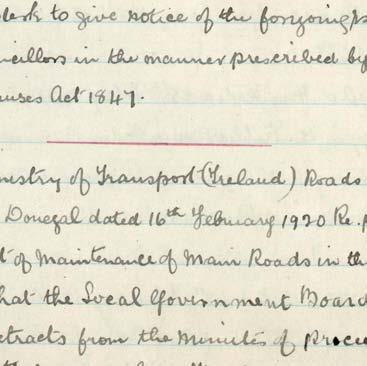 Clerk to give notice of the foregoing
ncillors in the manner prescribed by
auses Act 1847.
nistry of Transport (Ireland) Roads
Donegal dated 16th February 1920 Re.
t of Maintenance of Main Roads in th
hat the Local Government Board
xtracts from the Minutes of procee